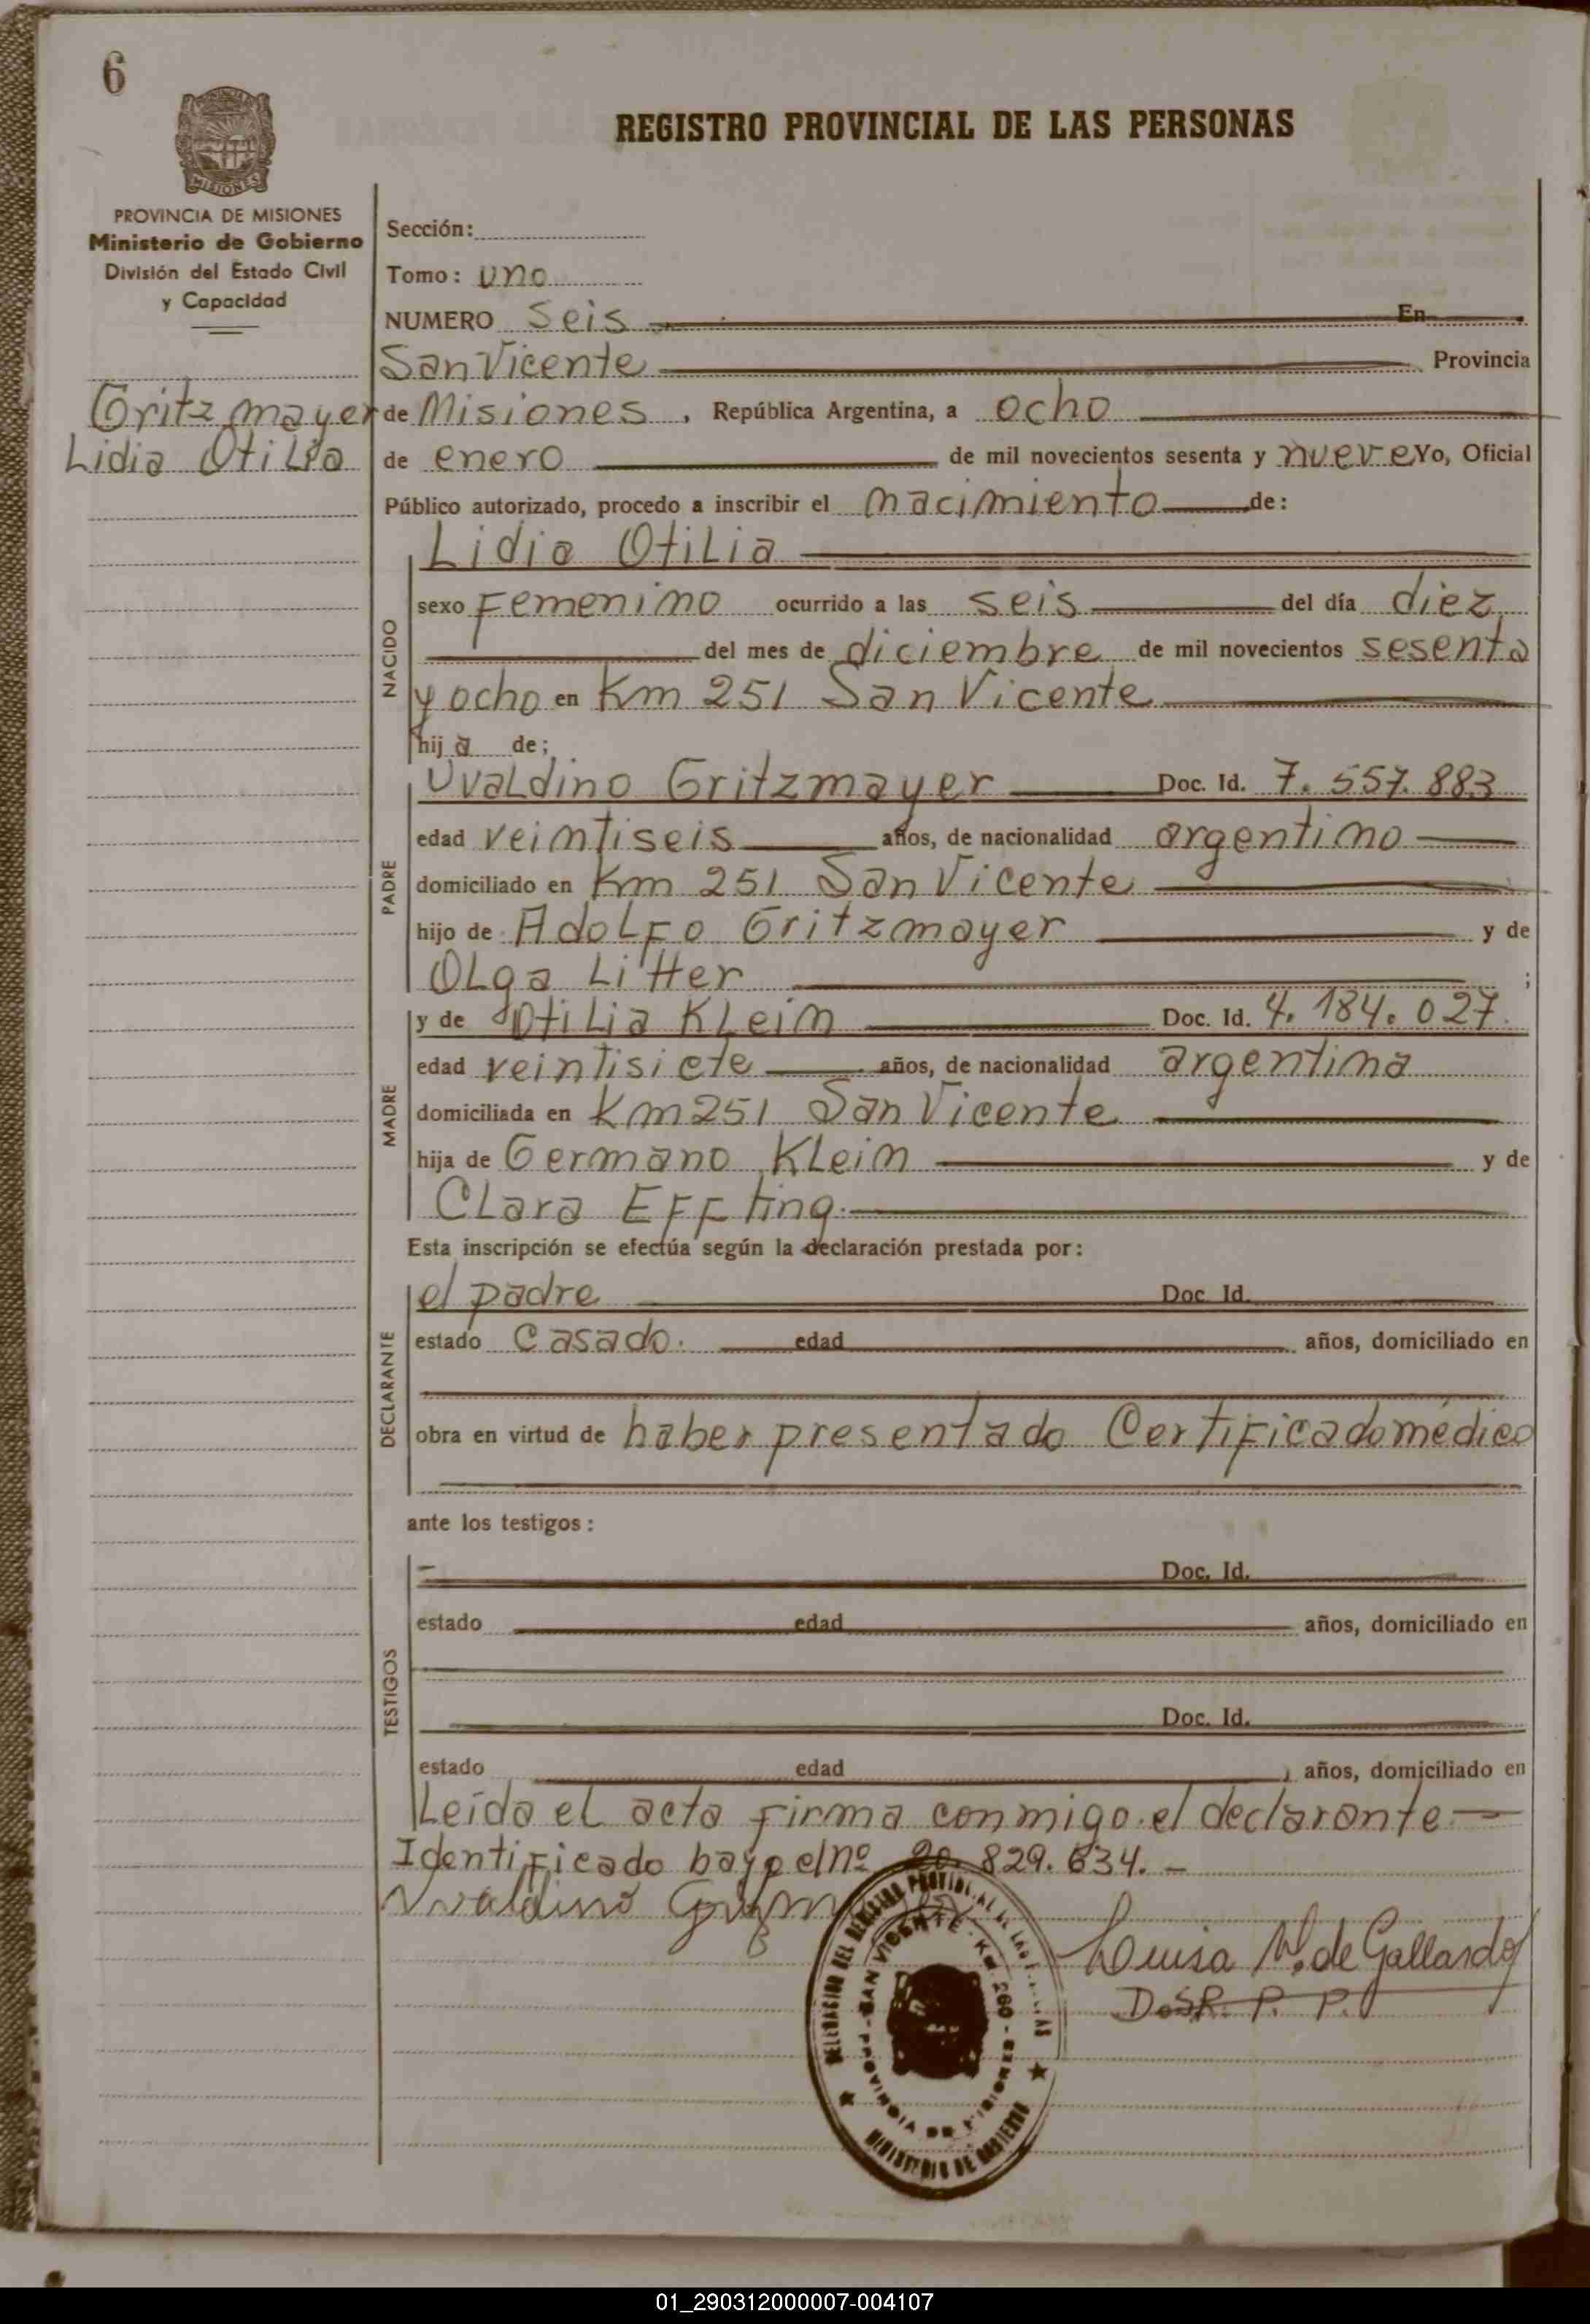 6
REGISTRO PROVINCIAL DE LAS PERSONAS
MISIONES
PROVINCIA DE MISIONES
Ministerio de Gobierno
División del Estado Civil
y Capacidad
Gritzmayer
Lidia Otilia
Sección:
Tomo: uno
NUMERO seis En
San Vicente Provincia
de Misiones, República Argentina, a ocho
de enero de mil novecientos sesenta y nueve Yo, Oficial
Público autorizado, procedo a inscribir el nacimiento de:
NACIDO
Lidia Otilia
sexo Femenino ocurrido a las seis del día diez
del mes de diciembre de mil novecientos sesenta
y ocho en Km 251 San Vicente
hija de;
PADRE
Uvaldino Gritzmayer Doc. Id. 7.557.883
edad veintiseis años, de nacionalidad argentino
domiciliado en Km 251 San Vicente
hijo de Adolfo Gritzmayer y de
Olga Litter ;
MADRE
y de Otilia Klein Doc. Id. 4.184.027
edad veintisiete años, de nacionalidad argentina
domiciliada en Km 251 San Vicente
hija de Germano Klein y de
Clara Effting.
Esta inscripción se efectúa según la declaración prestada por:
DECLARANTE
el padre Doc. Id.
estado casado. edad años, domiciliado en
obra en virtud de haber presentado Certificado médico
ante los testigos:
TESTIGOS
Doc. Id.
estado edad años, domiciliado en
Doc. Id.
estado edad años, domiciliado en
Leída el acta firma conmigo el declarante.—
Identificado bajo el nº 20.829.634.-
Uvaldino
Luisa de Gallardo
D.SR. P. P.
DELEGACION DEL REGISTRO PROVINCIAL DE LAS PERSONAS
SAN VICENTE - Km. 260 - PROVINCIA DE MISIONES
MINISTERIO DE GOBIERNO
01_290312000007-004107